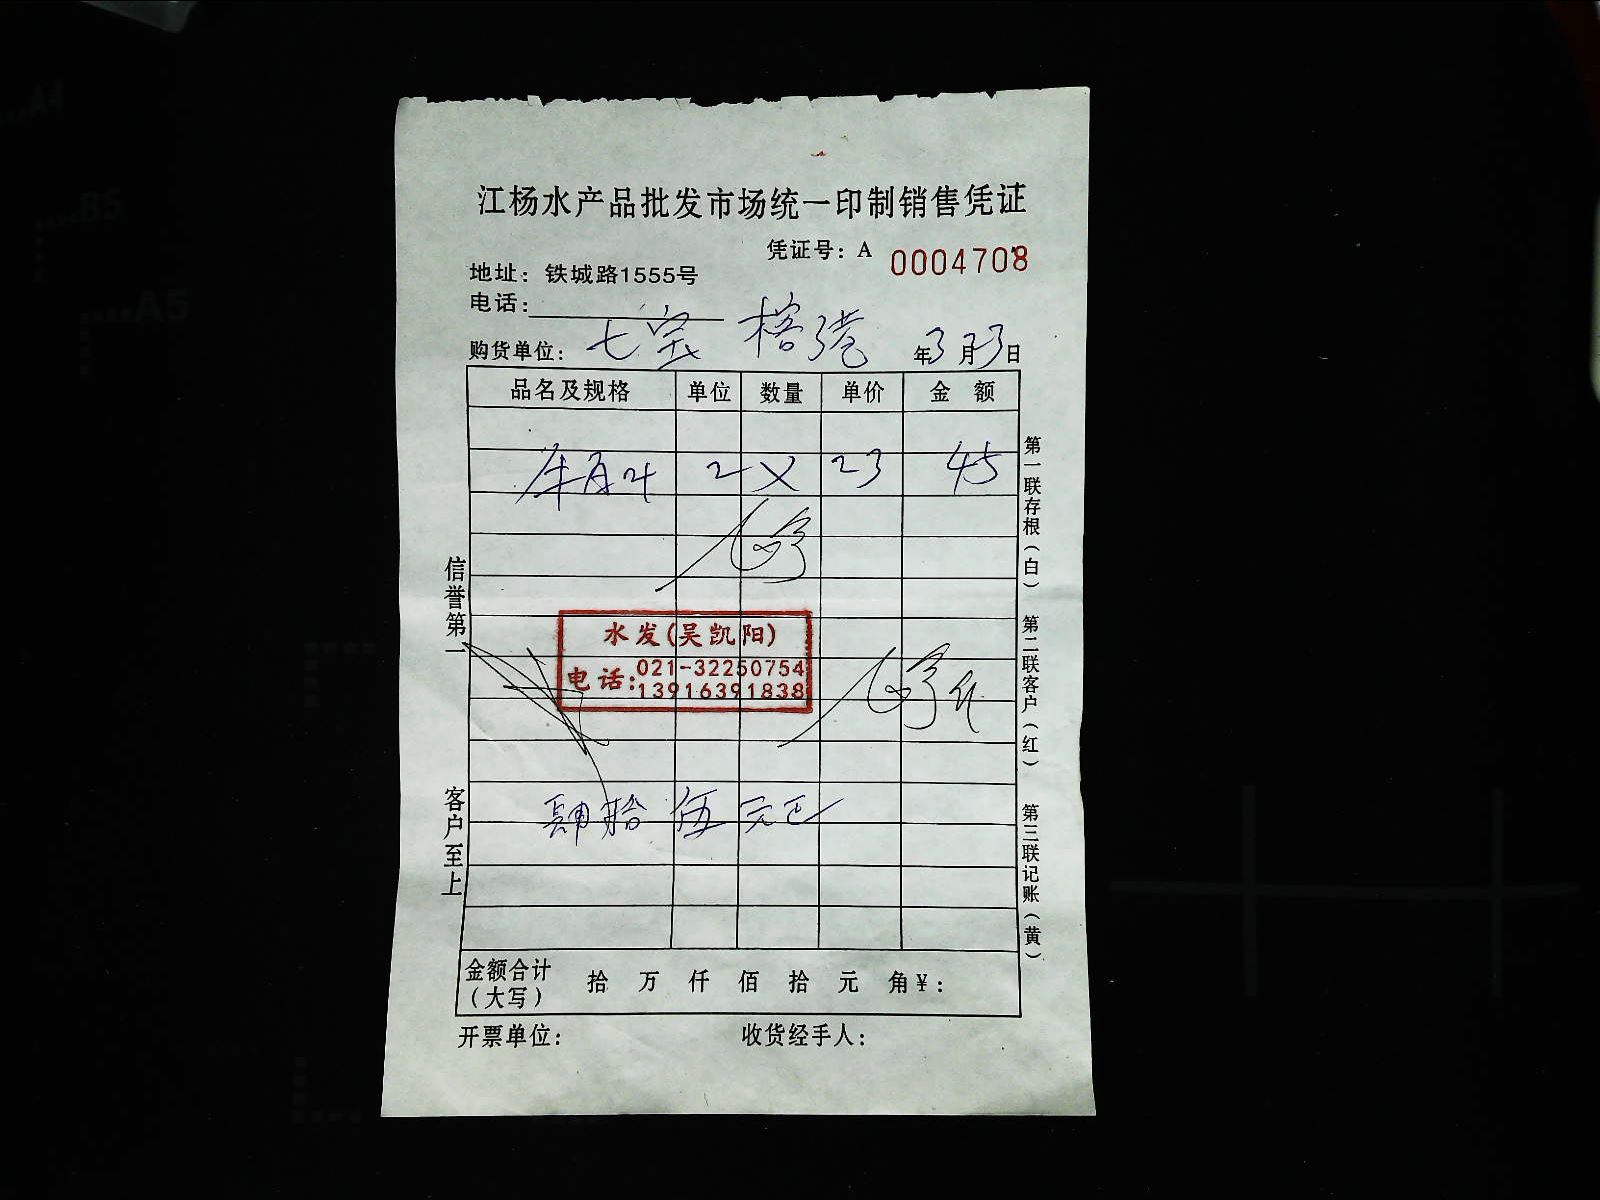 江杨水产品批发市场统一印制销售凭证
凭证号：A 0004708
地址：铁城路1555号
电话：
购货单位：七宝 榕港 年3月23日
品名及规格 单位 数量 单价 金 额
2 X 23 45
水发(吴凯阳)
电话:021-32250754
13916391838
肆拾伍元正
金额合计（大写） 拾 万 仟 佰 拾 元 角¥：
开票单位： 收货经手人：
信誉第一 客户至上
第一联存根（白） 第二联客户（红） 第三联记账（黄）
A4
B5
A5